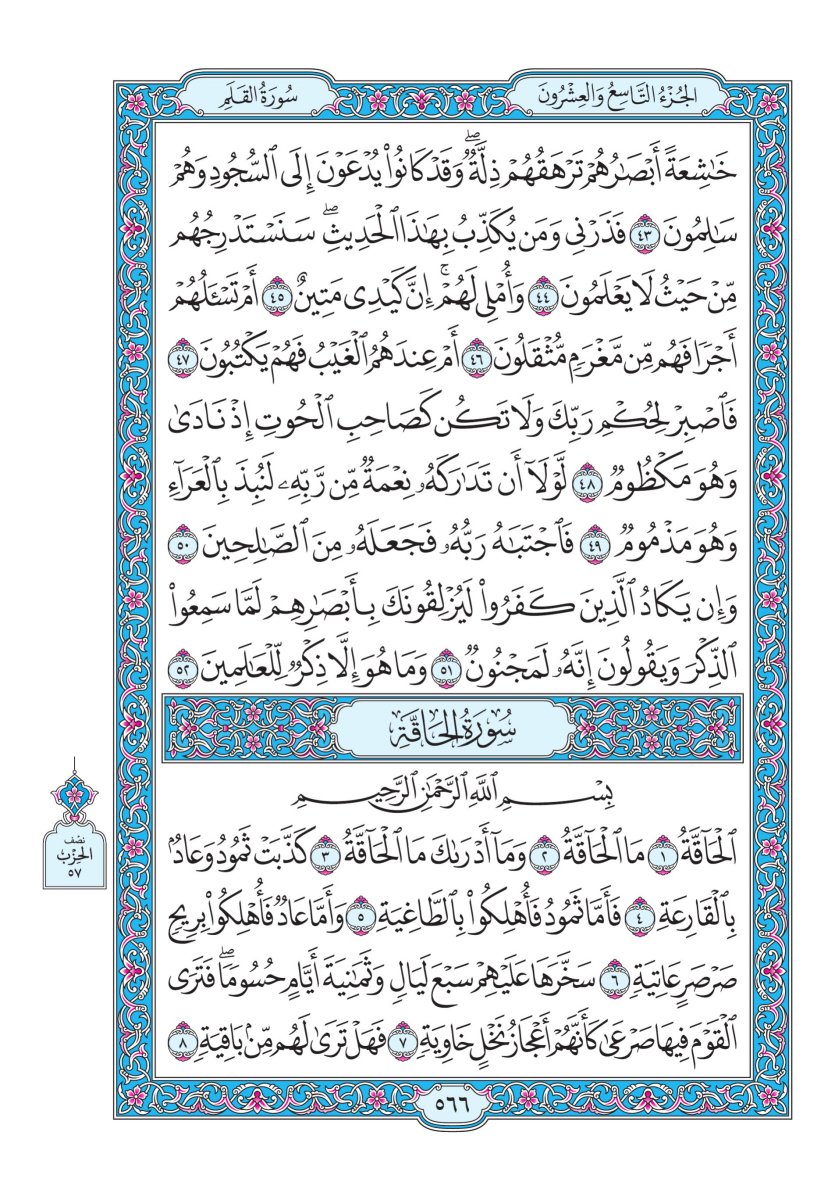 الجُزْءُ التَّاسِعُ وَالعِشْرُونَ
سُورَةُ القَلَمِ
خَٰشِعَةً أَبْصَٰرُهُمْ تَرْهَقُهُمْ ذِلَّةٌۖ وَقَدْ كَانُوا۟ يُدْعَوْنَ إِلَى ٱلسُّجُودِ وَهُمْ
سَٰلِمُونَ ٤٣ فَذَرْنِى وَمَن يُكَذِّبُ بِهَٰذَا ٱلْحَدِيثِۖ سَنَسْتَدْرِجُهُم
مِّنْ حَيْثُ لَا يَعْلَمُونَ ٤٤ وَأُمْلِى لَهُمْۚ إِنَّ كَيْدِى مَتِينٌ ٤٥ أَمْ تَسْـَٔلُهُمْ
أَجْرًا فَهُم مِّن مَّغْرَمٍ مُّثْقَلُونَ ٤٦ أَمْ عِندَهُمُ ٱلْغَيْبُ فَهُمْ يَكْتُبُونَ ٤٧
فَٱصْبِرْ لِحُكْمِ رَبِّكَ وَلَا تَكُن كَصَاحِبِ ٱلْحُوتِ إِذْ نَادَىٰ
وَهُوَ مَكْظُومٌ ٤٨ لَّوْلَآ أَن تَدَٰرَكَهُۥ نِعْمَةٌ مِّن رَّبِّهِۦ لَنُبِذَ بِٱلْعَرَآءِ
وَهُوَ مَذْمُومٌ ٤٩ فَٱجْتَبَٰهُ رَبُّهُۥ فَجَعَلَهُۥ مِنَ ٱلصَّٰلِحِينَ ٥٠
وَإِن يَكَادُ ٱلَّذِينَ كَفَرُوا۟ لَيُزْلِقُونَكَ بِأَبْصَٰرِهِمْ لَمَّا سَمِعُوا۟
ٱلذِّكْرَ وَيَقُولُونَ إِنَّهُۥ لَمَجْنُونٌ ٥١ وَمَا هُوَ إِلَّا ذِكْرٌ لِّلْعَٰلَمِينَ ٥٢
سُورَةُ الحَاقَّةِ
بِسْمِ ٱللَّهِ ٱلرَّحْمَٰنِ ٱلرَّحِيمِ
ٱلْحَآقَّةُ ١ مَا ٱلْحَآقَّةُ ٢ وَمَآ أَدْرَىٰكَ مَا ٱلْحَآقَّةُ ٣ كَذَّبَتْ ثَمُودُ وَعَادٌۢ
بِٱلْقَارِعَةِ ٤ فَأَمَّا ثَمُودُ فَأُهْلِكُوا۟ بِٱلطَّاغِيَةِ ٥ وَأَمَّا عَادٌ فَأُهْلِكُوا۟ بِرِيحٍ
صَرْصَرٍ عَاتِيَةٍ ٦ سَخَّرَهَا عَلَيْهِمْ سَبْعَ لَيَالٍ وَثَمَٰنِيَةَ أَيَّامٍ حُسُومًاۖ فَتَرَى
ٱلْقَوْمَ فِيهَا صَرْعَىٰ كَأَنَّهُمْ أَعْجَازُ نَخْلٍ خَاوِيَةٍ ٧ فَهَلْ تَرَىٰ لَهُم مِّنۢ بَاقِيَةٍ ٨
نصْف
الحِزْب
٥٧
٥٦٦